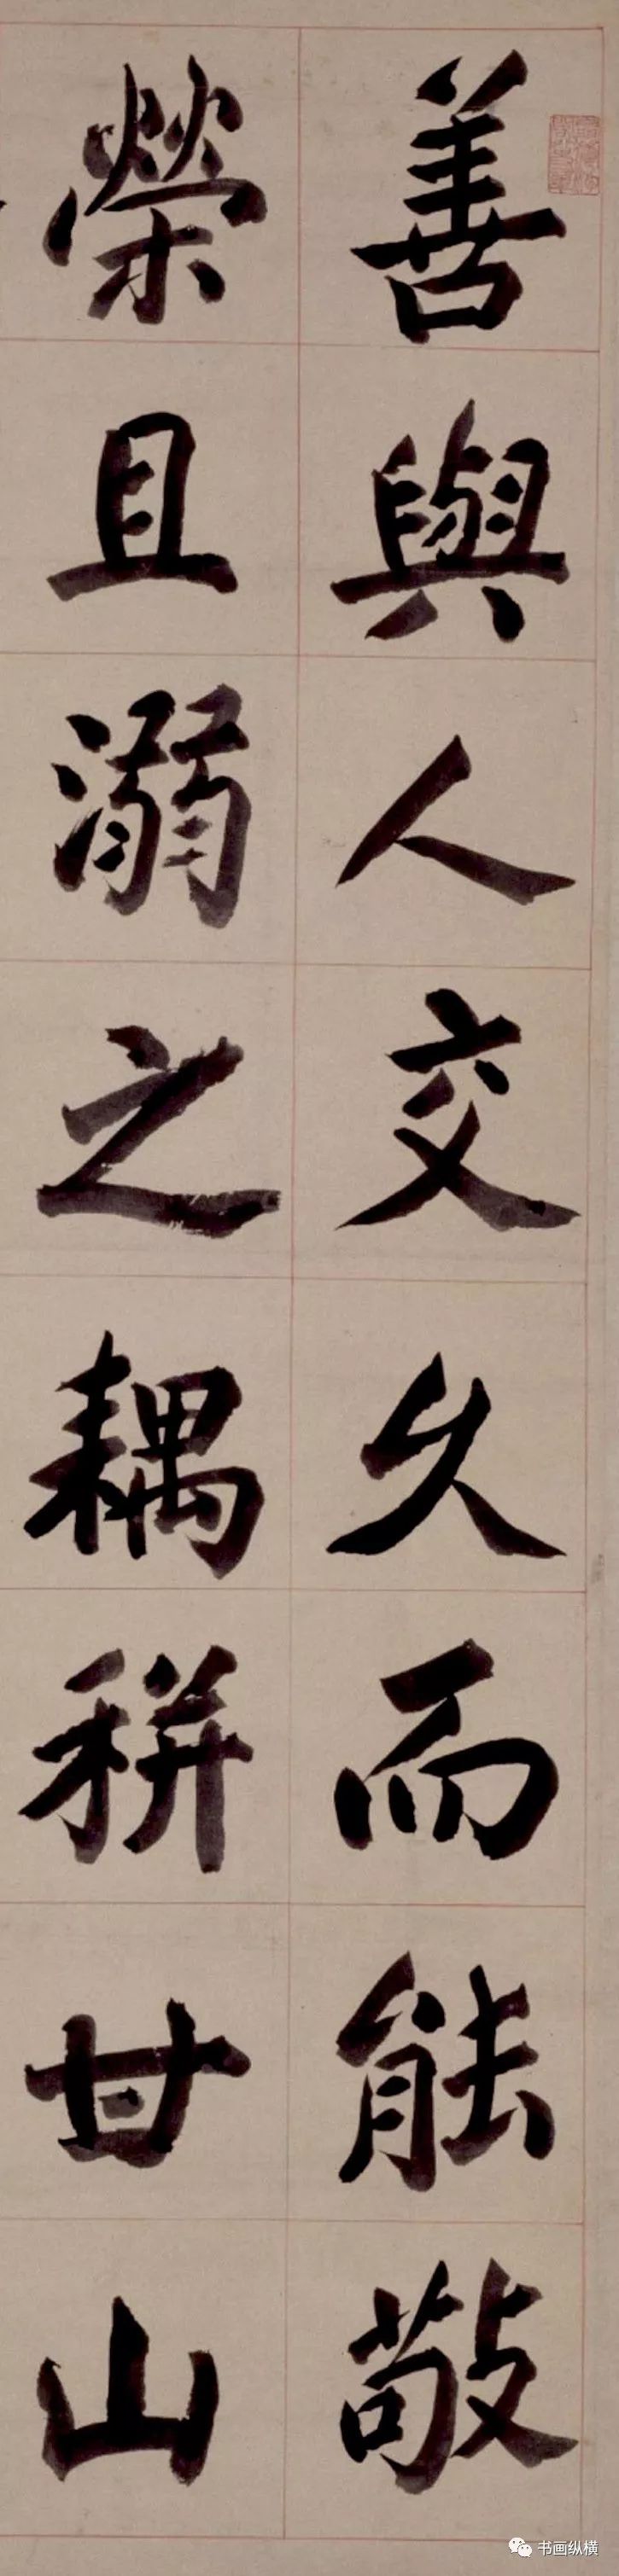 善與人交久而能敬
榮且溺之耦耕甘山
书画纵横